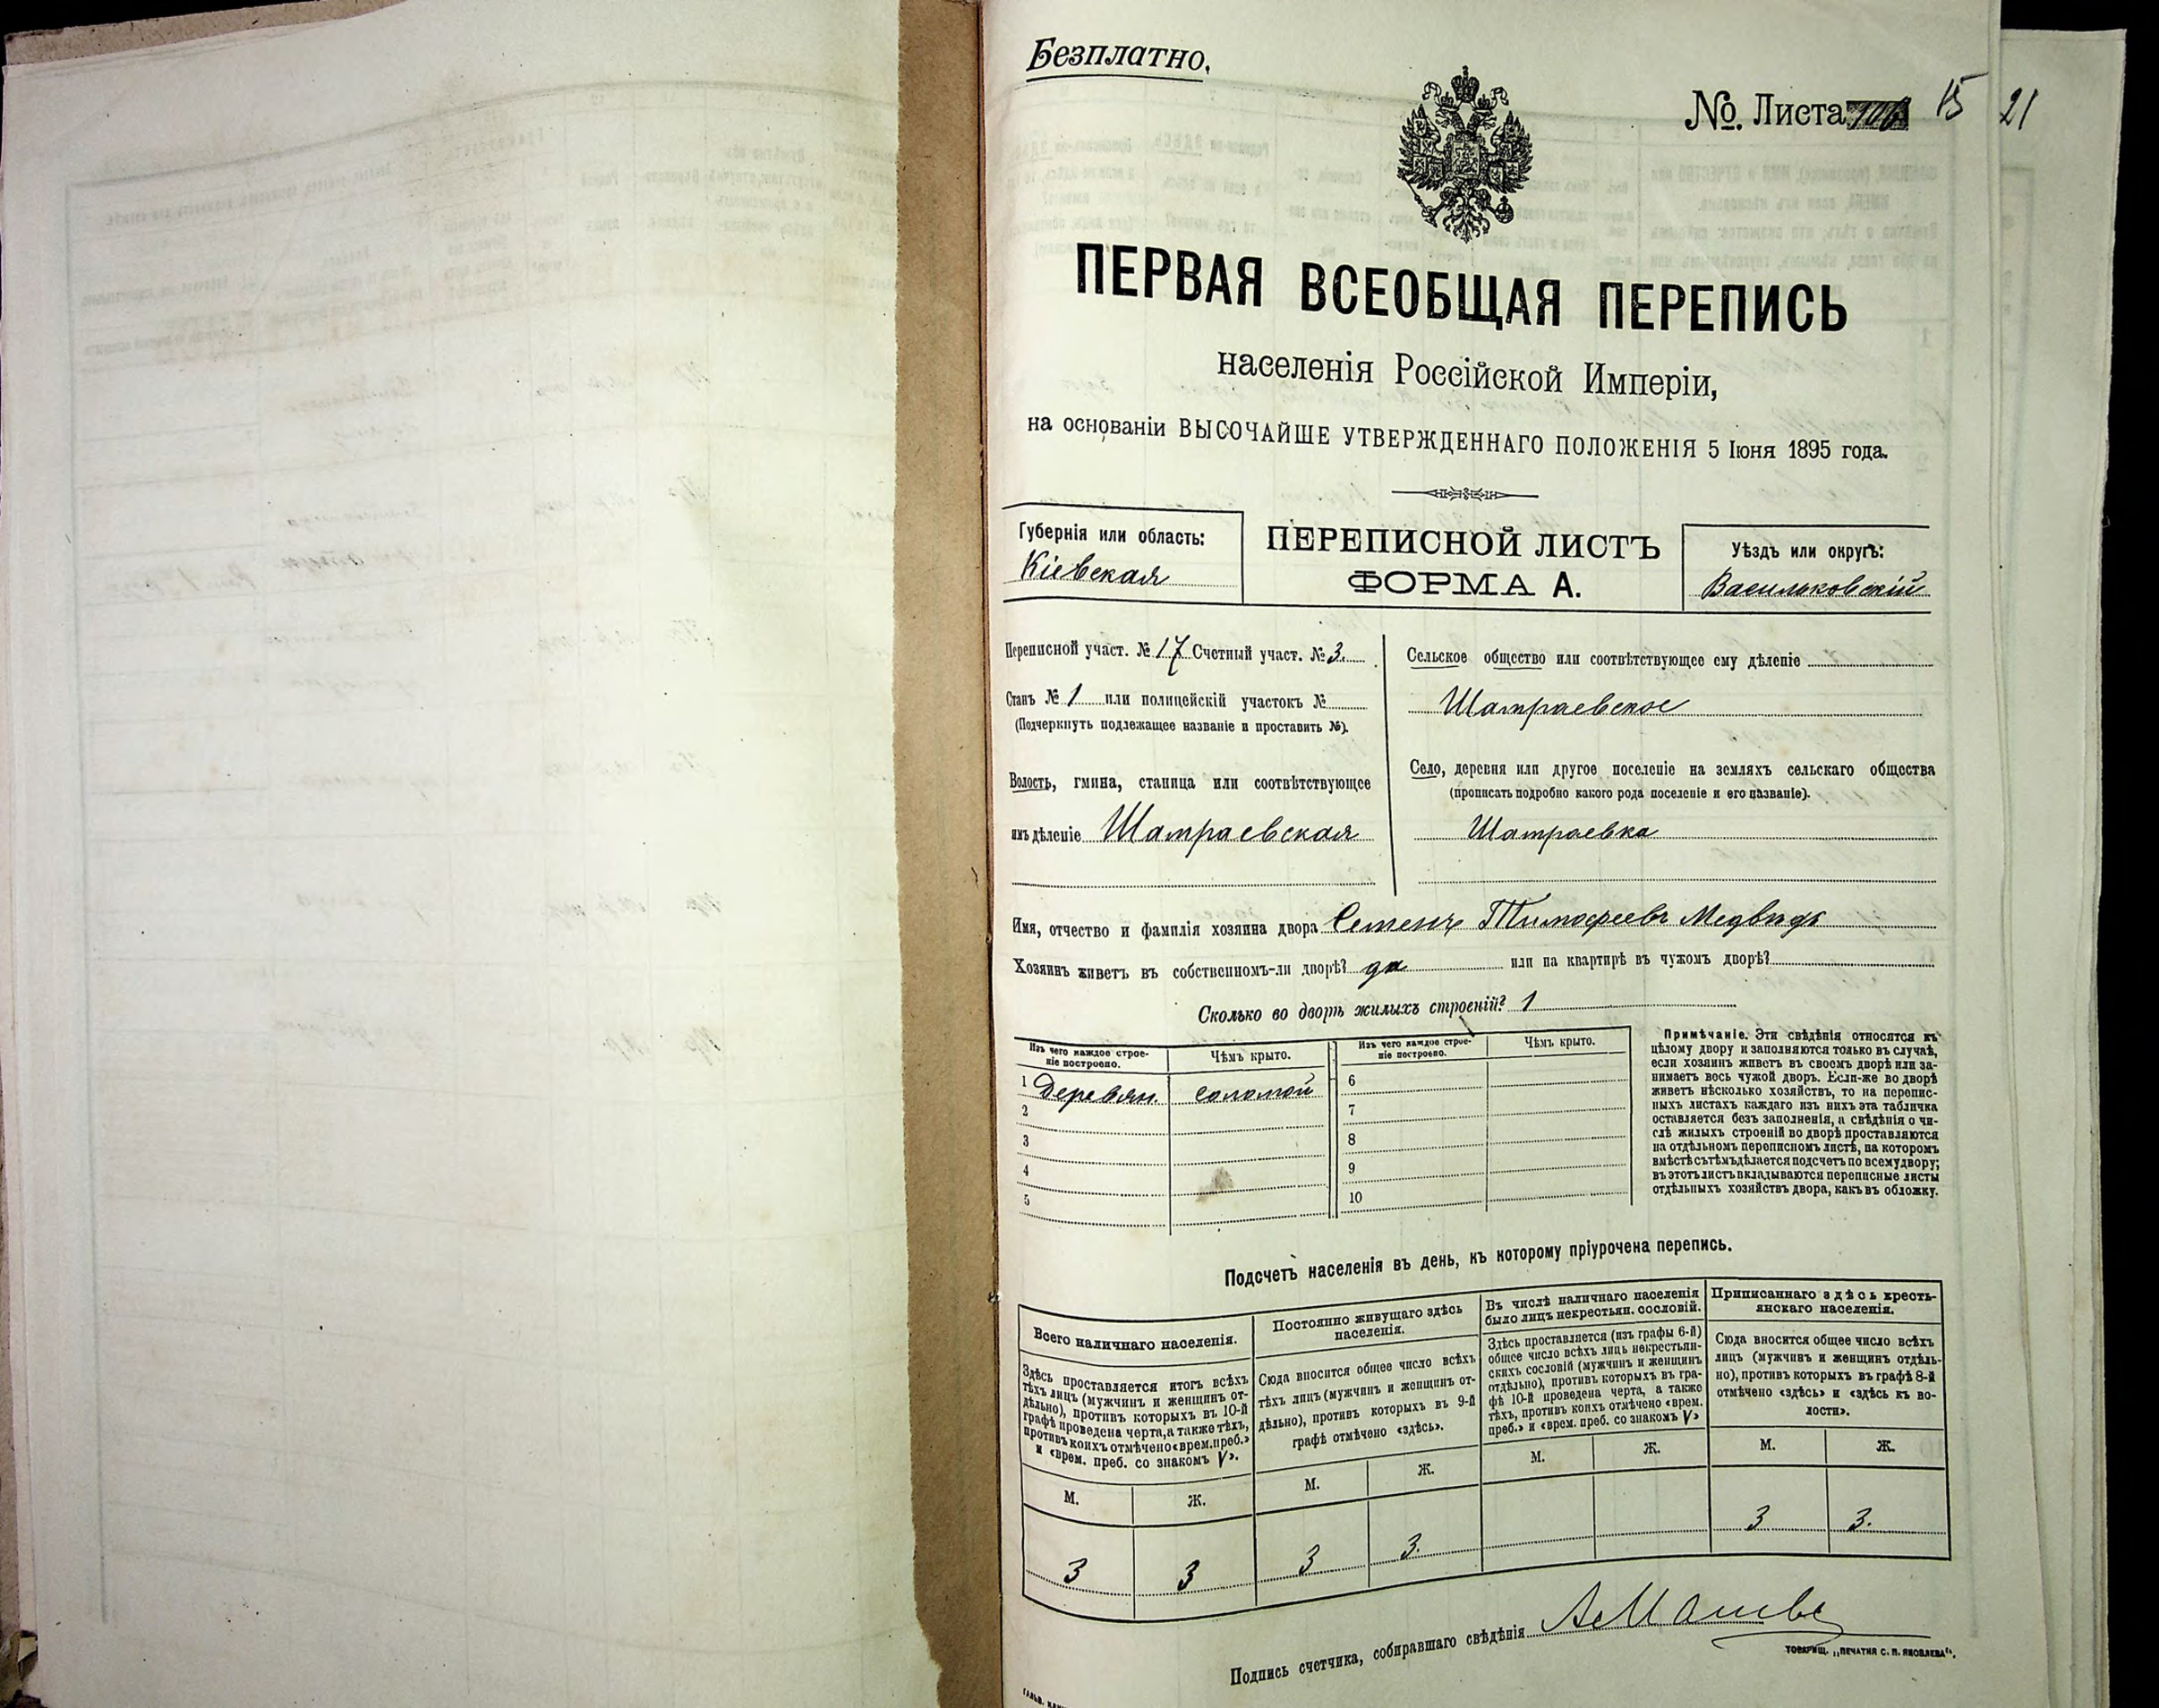 Безплатно.
№. Листа 15 21
ПЕРВАЯ ВСЕОБЩАЯ ПЕРЕПИСЬ
населенія Россійской Имперіи,
на основаніи ВЫСОЧАЙШЕ УТВЕРЖДЕННАГО ПОЛОЖЕНІЯ 5 Іюня 1895 года.
Губернія или область:
Кіевская
ПЕРЕПИСНОЙ ЛИСТЪ
ФОРМА А.
Уѣздъ или округъ:
Васильковскій
Переписной участ. № 17 Счетный участ. № 3.
Станъ № 1 или полицейскій участокъ №
(Подчеркнуть подлежащее названіе и проставить №).
Волость, гмина, станица или соотвѣтствующее
имъ дѣленіе Шамраевская
Сельское общество или соотвѣтствующее ему дѣленіе
Шамраевское
Село, деревня или другое поселеніе на земляхъ сельскаго общества
(прописать подробно какого рода поселеніе и его названіе).
Шамраевка
Имя, отчество и фамилія хозяина двора Семенъ Тимофеевъ Медвидь
Хозяинъ живетъ въ собственномъ-ли дворѣ? да или на квартирѣ въ чужомъ дворѣ?
Сколько во дворѣ жилыхъ строеній? 1
Изъ чего каждое строе-
ніе построено.
Чѣмъ крыто.
1 Деревян. соломой
2
3
4
5
Изъ чего каждое строе-
ніе построено.
Чѣмъ крыто.
6
7
8
9
10
Примѣчаніе. Эти свѣдѣнія относятся къ
цѣлому двору и заполняются только въ случаѣ,
если хозяинъ живетъ въ своемъ дворѣ или за-
нимаетъ весь чужой дворъ. Если-же во дворѣ
живетъ нѣсколько хозяйствъ, то на перепис-
ныхъ листахъ каждаго изъ нихъ эта табличка
оставляется безъ заполненія, а свѣдѣнія о чи-
слѣ жилыхъ строеній во дворѣ проставляются
на отдѣльномъ переписномъ листѣ, на которомъ
вмѣстѣ съ тѣмъ дѣлается подсчетъ по всему двору;
въ этотъ листъ вкладываются переписные листы
отдѣльныхъ хозяйствъ двора, какъ въ обложку.
Подсчетъ населенія въ день, къ которому пріурочена перепись.
Всего наличнаго населенія.
Здѣсь проставляется итогъ всѣхъ
тѣхъ лицъ (мужчинъ и женщинъ от-
дѣльно), противъ которыхъ въ 10-й
графѣ проведена черта, а также тѣхъ,
противъ коихъ отмѣчено «врем. преб.»
и «врем. преб. со знакомъ V».
М. Ж.
3 3
Постоянно живущаго здѣсь
населенія.
Сюда вносится общее число всѣхъ
тѣхъ лицъ (мужчинъ и женщинъ от-
дѣльно), противъ которыхъ въ 9-й
графѣ отмѣчено «здѣсь».
М. Ж.
3 3.
Въ числѣ наличнаго населенія
было лицъ некрестьян. сословій.
Здѣсь проставляется (изъ графы 6-й)
общее число всѣхъ лицъ некрестьян-
скихъ сословій (мужчинъ и женщинъ
отдѣльно), противъ которыхъ въ гра-
фѣ 10-й проведена черта, а также
тѣхъ, противъ коихъ отмѣчено «врем.
преб.» и «врем. преб. со знакомъ V»
М. Ж.
Приписаннаго здѣсь кресть-
янскаго населенія.
Сюда вносится общее число всѣхъ
лицъ (мужчинъ и женщинъ отдѣль-
но), противъ которыхъ въ графѣ 8-й
отмѣчено «здѣсь» и «здѣсь къ во-
лости».
М. Ж.
3 3.
Подпись счетчика, собиравшаго свѣдѣнія
ТОВАРИЩ. „ПЕЧАТНЯ С. П. ЯКОВЛЕВА“.